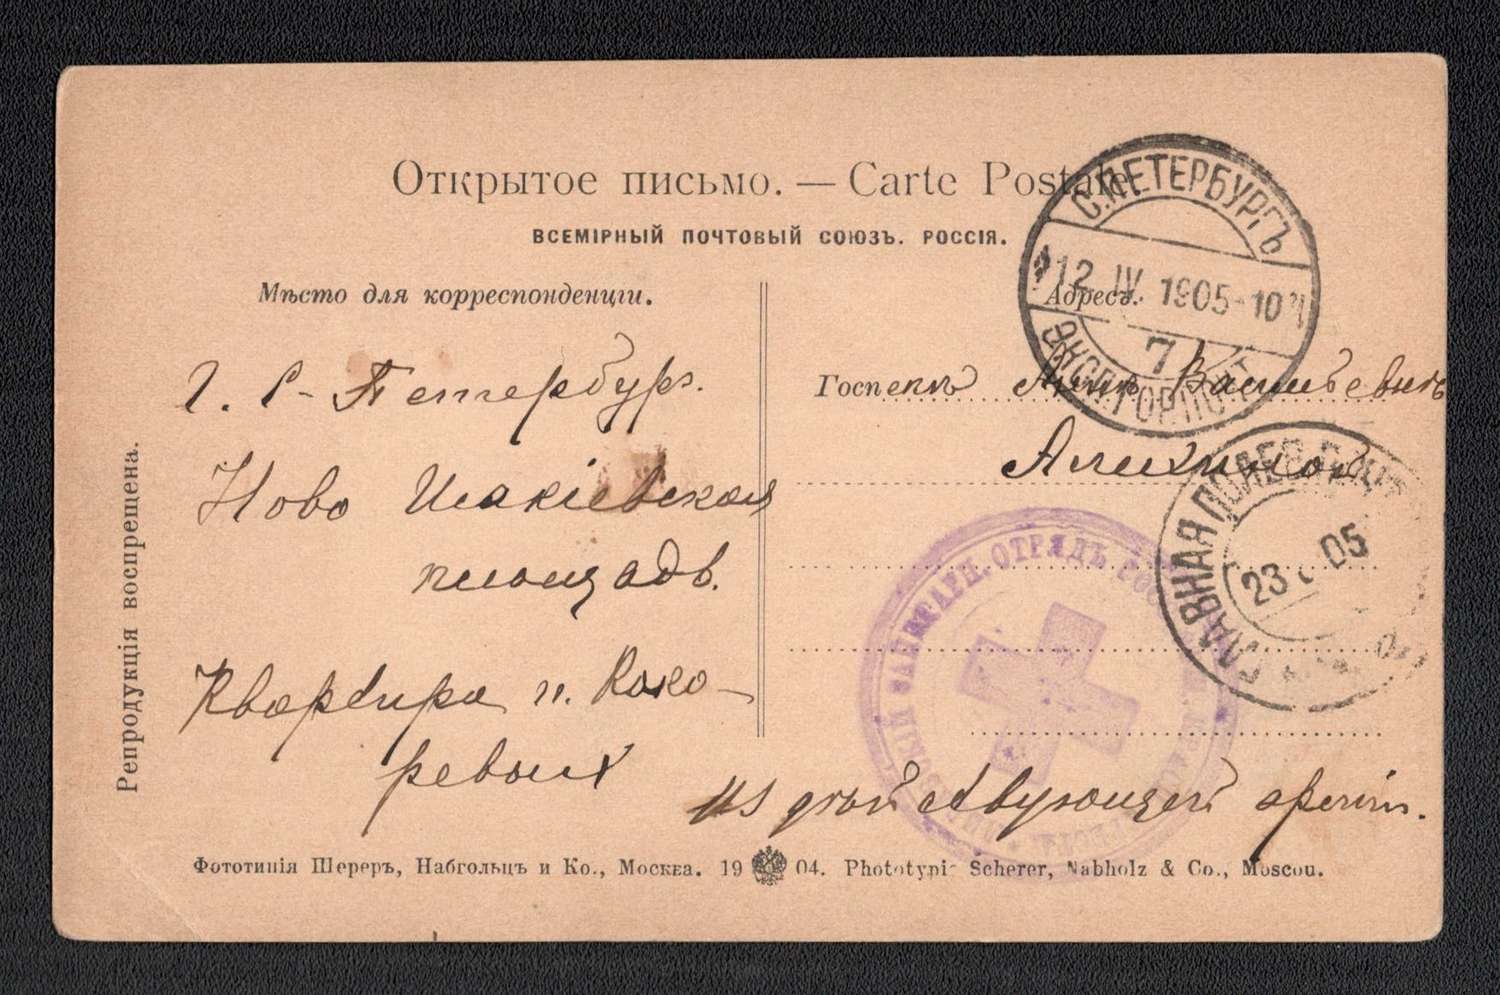 Открытое письмо. — Carte Postale.
ВСЕМІРНЫЙ ПОЧТОВЫЙ СОЮЗЪ. РОССІЯ.
Мѣсто для корреспонденціи.
Адресъ.
С.ПЕТЕРБУРГЪ
12 IV 1905-10
7
ЭКСП. ГОР. ПОЧТ
Г. С-Петербург.
Ново Исакіевская
площадь.
Квартира п. Коко-
ревых
Госпе Анне Васильевне
ГЛАВНАЯ ПОЛЕВ.
23 05
ОТРЯДЪ
Из действующей армии.
Репродукція воспрещена.
Фототипія Шереръ, Набгольцъ и Ко., Москва. 1904. Phototypie Scherer, Nabholz & Co., Moscou.